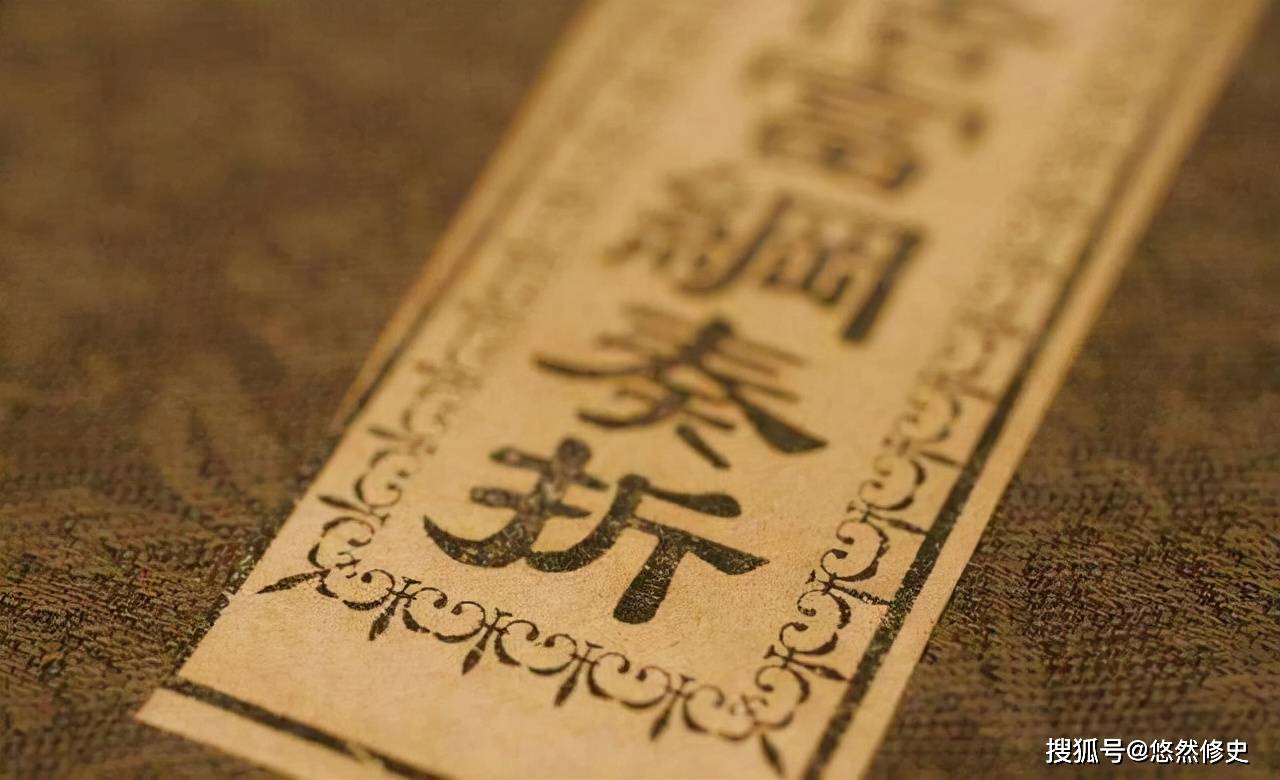 富綱奏折
搜狐号@悠然修史